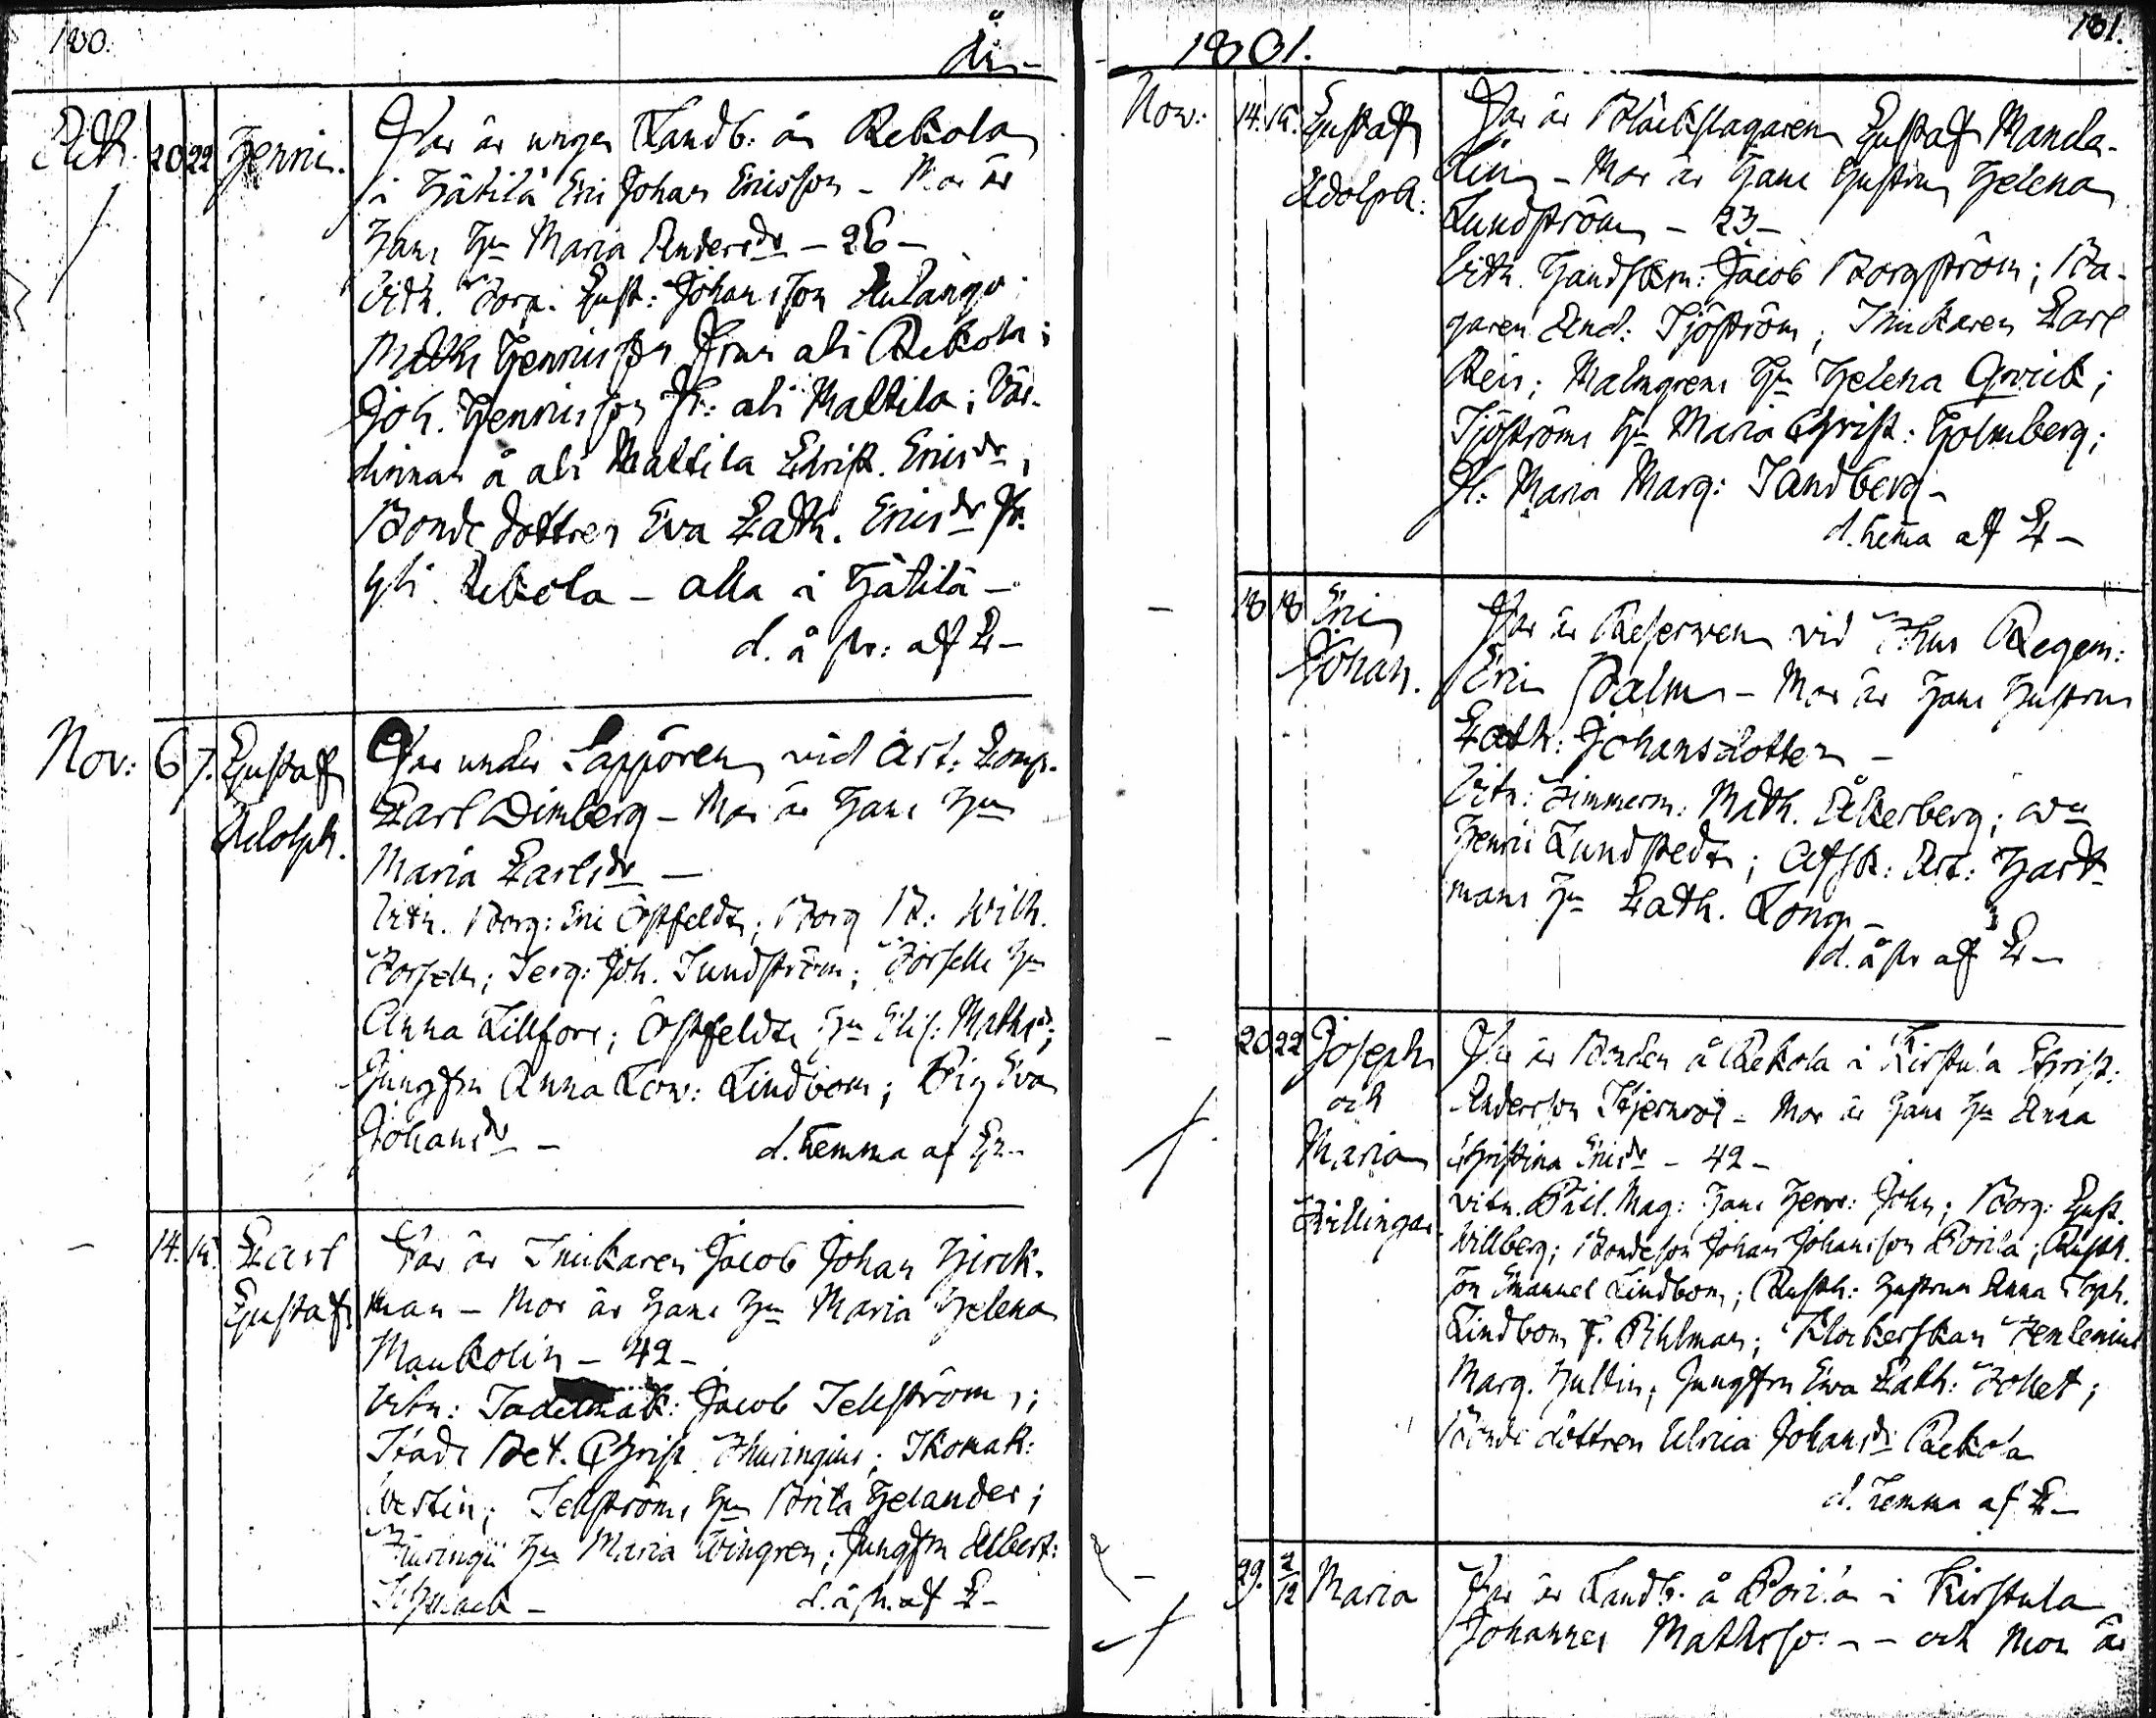 180.
År
Octb. 20 22 Henric.
Far är unga Landb: å Rekola
i Hätilä Eric Johan Ericsson - Mor är
Hans Hu Maria Andersdr - 26 -
Vitn. Gust: Johansson Aulango
Math Henricsson Rekola;
Joh. Henricsson Dr: ali Mattila; Vär-
dinnan å ali Mattila Christ. Ericsdr,
Bonde dottren Eva Cath. Ericsdr fr.
yli Rekola - alla i Hätilä -
d. å pr: af Er -
Nov: 6 7. Gustaf Adolph.
Far under Lappören vid Art: Comp.
Carl Dimberg - Mor är Hans Hu
Maria Carlsdr -
Vitn. Borg: Eric Östfeldt; Borg B: Wilh.
Forsell; Serg: Joh. Sundström; Forselli Hu
Anna Lillfors; Östfeldts Hu Elis: Mathsdr;
Jungfru Anna Lov: Lindbom; Pig Eva
Johansdr -
d. hemma af Er -
14. 15. Carl Gustaf
Far är Snickaren Jacob Johan Hirck-
man - Mor är Hans Hu Maria Helena
Maukolin - 42 -
Vitn: Sadelmak: Jacob Sellström;
Stads Bet. Christ Thuringius; Skomak:
Westin; Sellströms Hu Brita Helander;
Thuringii Hu Maria Wingren; Jungfru Albert:
d. å pr. af Er -
1801.
181.
Nov: 14. 15. Gustaf Adolph.
Far är Bläckslagaren Gustaf Mande-
lin - Mor är Hans Hustru Helena
Lundström - 23 -
Vitn. Handskm: Jacob Borgström; Ba-
garen And: Sjöström; Snickaren Carl
Rein; Malmgrens Hu Helena Qvick;
Sjöströms Hu Maria Christ: Holmberg;
Fl: Maria Marg: Sandberg -
d. hemma af Er -
18 18 Eric Johan.
Far är Reserven vid Thus Regem:
Eric Palm - Mor är Hans Hustru
Cath: Johansdotter -
Vitn: Timmerm: Math. Åkerberg;
Henric Lundstedt; Afsk: Art: Hart-
mans Hu Cath. Long -
d. å pr af Er -
20 22 Joseph och Maria Tvillingar
Far är Bonden å Rekola i Kirstula Christ:
Andersson Stjernvol - Mor är Hans Hu Anna
Christina Ericsdr - 42 -
Vitn. Phil. Mag: Hans Henr: John; Borg: Gust.
Willberg; Bondeson Johan Johansson Porila; Rusth.
Son Emanuel Lindbom; Rusth: Hustrun Anna Soph.
Lindbom f. Pihlman; Klockerskan Zenlenius
Marg. Hultin; Jungfru Eva Cath: Follet;
Bonde dottren Ulrica Johansdr Rekola
d. hemma af Er -
29. 2/12 Maria
Far är Landb. å Porila i Kirstula
Johannes Mathsson - - och Mor är